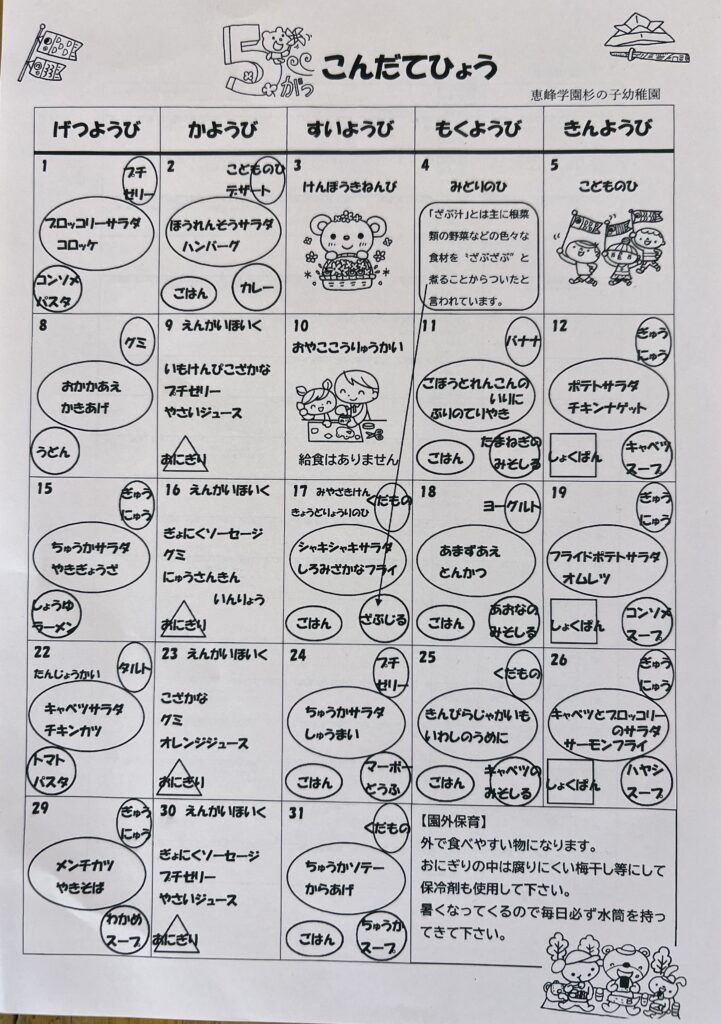 5がつ こんだてひょう
恵峰学園杉の子幼稚園
げつようび かようび すいようび もくようび きんようび
1
プチ
ゼリー
ブロッコリーサラダ
コロッケ
コンソメ
パスタ
2
こどものひ
デザート
ほうれんそうサラダ
ハンバーグ
ごはん
カレー
3
けんぽうきねんび
4
みどりのひ
「ざぶ汁」とは主に根菜
類の野菜などの色々な
食材を“ざぶざぶ”と
煮ることからついたと
言われています。
5
こどものひ
8
グミ
おかかあえ
かきあげ
うどん
9 えんがいほいく
いもけんぴこざかな
プチゼリー
やさいジュース
おにぎり
10
おやここうりゅうかい
給食はありません
11
バナナ
ごぼうとれんこんの
いりに
ぶりのてりやき
ごはん
たまねぎの
みそしる
12
ぎゅう
にゅう
ポテトサラダ
チキンナゲット
しょくぱん
キャベツ
スープ
15
ぎゅう
にゅう
ちゅうかサラダ
やきぎょうざ
しょうゆ
ラーメン
16 えんがいほいく
ぎょにくソーセージ
グミ
にゅうさんきん
いんりょう
おにぎり
17 みやざきけん
きょうどりょうりのひ
くだもの
シャキシャキサラダ
しろみざかなフライ
ごはん
ざぶじる
18
ヨーグルト
あまずあえ
とんかつ
ごはん
あおなの
みそしる
19
ぎゅう
にゅう
フライドポテトサラダ
オムレツ
しょくぱん
コンソメ
スープ
22
たんじょうかい
タルト
キャベツサラダ
チキンカツ
トマト
パスタ
23 えんがいほいく
こざかな
グミ
オレンジジュース
おにぎり
24
プチ
ゼリー
ちゅうかサラダ
しゅうまい
ごはん
マーボー
どうふ
25
くだもの
きんぴらじゃがいも
いわしのうめに
ごはん
キャベツの
みそしる
26
ぎゅう
にゅう
キャベツとブロッコリー
のサラダ
サーモンフライ
しょくぱん
ハヤシ
スープ
29
ぎゅう
にゅう
メンチカツ
やきそば
わかめ
スープ
30 えんがいほいく
ぎょにくソーセージ
プチゼリー
やさいジュース
おにぎり
31
くだもの
ちゅうかソテー
からあげ
ごはん
ちゅうか
スープ
【園外保育】
外で食べやすい物になります。
おにぎりの中は腐りにくい梅干し等にして
保冷剤も使用して下さい。
暑くなってくるので毎日必ず水筒を持っ
てきて下さい。